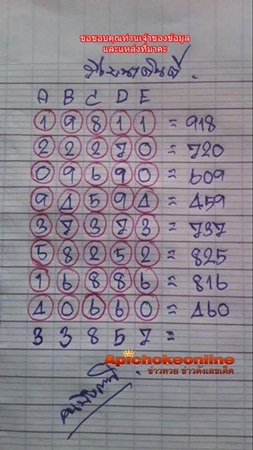 ขอขอบคุณท่านเจ้าของข้อมูล
และแหล่งที่มาคะ
A B C D E
1 9 8 1 1 = 918
2 2 2 7 0 = 720
0 9 6 9 0 = 609
9 4 5 9 4 = 459
3 7 3 7 3 = 737
5 8 2 5 2 = 825
1 6 8 8 6 = 816
4 0 6 6 0 = 460
3 3 8 5 7 =
Apichokeonline
ข่าวหวย ข่าวดังเลขเด็ด